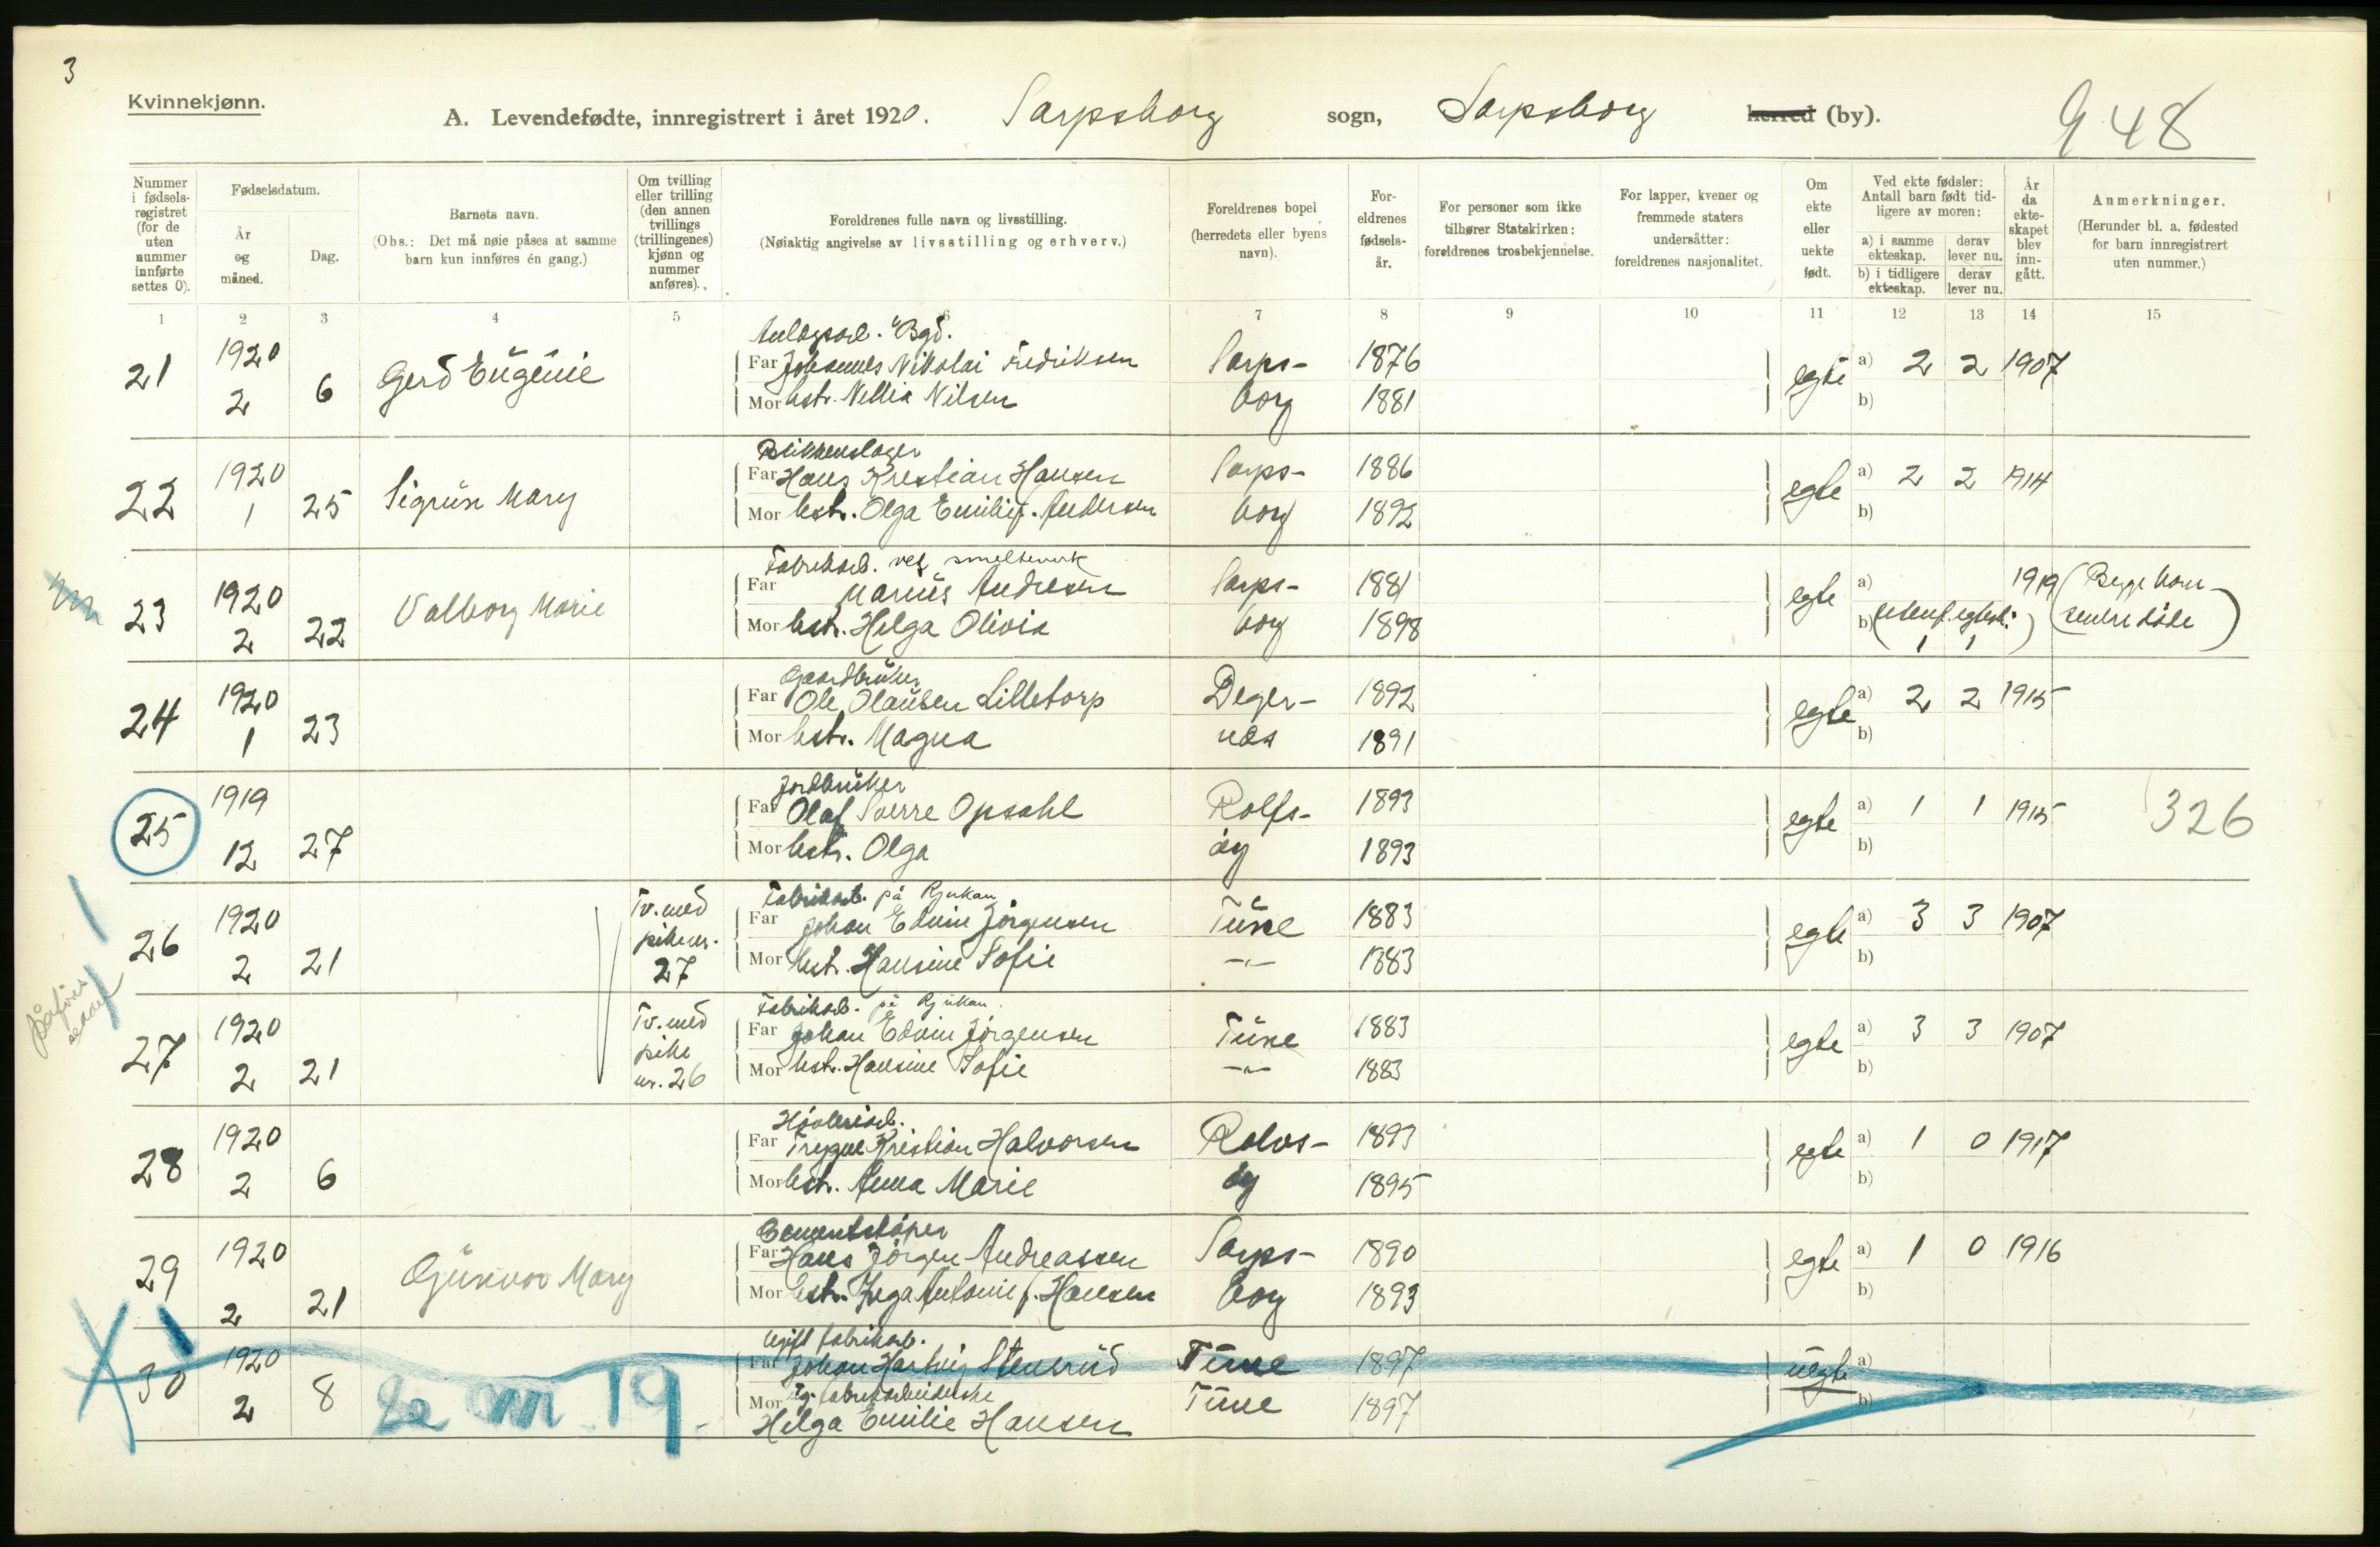 3
Kvinnekjønn.
A. Levendefødte, innregistrert i året 1920. Sarpsborg sogn, Sarpsborg herred (by).
48
Nummer i fødsels-registret (for de uten nummer innførte settes 0).
Fødselsdatum.
År og måned.
Dag.
Barnets navn.
(Obs.: Det må nøie påses at samme barn kun innføres én gang.)
Om tvilling eller trilling (den annen tvillings (trillingenes) kjønn og nummer anføres).
Foreldrenes fulle navn og livsstilling.
(Nøiaktig angivelse av livsstilling og erhverv.)
Foreldrenes bopel (herredets eller byens navn).
For-eldrenes fødsels-år.
For personer som ikke tilhører Statskirken: foreldrenes trosbekjennelse.
For lapper, kvener og fremmede staters undersåtter: foreldrenes nasjonalitet.
Om ekte eller uekte født.
Ved ekte fødsler: Antall barn født tid-ligere av moren:
a) i samme ekteskap.
derav lever nu.
b) i tidligere ekteskap.
derav lever nu.
År da ekte-skapet blev inn-gått.
Anmerkninger.
(Herunder bl. a. fødested for barn innregistrert uten nummer.)
1 2 3 4 5 6 7 8 9 10 11 12 13 14 15
21 1920 2 6 Gerd Eugenie
Far Johannes Nikolai Fredriksen Sarps- 1876 egte a) 2 2 1907
Mor hstr. Nellia Nilsen borg 1881 b)
22 1920 1 25 Sigrun Mary
Blikkenslager
Far Hans Kristian Hansen Sarps- 1886 egte a) 2 2 1914
Mor hstr. Olga Emilie f. Andersen borg 1892 b)
23 1920 2 22 Valborg Marie
Fabrikarb. ved smelteverk
Far Marius Andresen Sarps- 1881 egte a) 1919 (Begge barn
Mor hstr. Helga Olivia borg 1898 b) ( 1 1 ) senere døde)
24 1920 1 23
Gaardbruker
Far Ole Olausen Lilletorp Deger- 1892 egte a) 2 2 1915
Mor hstr. Magna nes 1891 b)
25 1919 12 27
Jordbruker
Far Olaf Sverre Opsahl Rolfs- 1893 egte a) 1 1 1915 326
Mor hstr. Olga øy 1893 b)
26 1920 2 21 Tv. med pike nr. 27
Fabrikarb. på Rjukan
Far Johan Edvin Jørgensen Tune 1883 egte a) 3 3 1907
Mor hstr. Hansine Sofie -"- 1883 b)
27 1920 2 21 Tv. med pike nr. 26
Fabrikarb. på Rjukan.
Far Johan Edvin Jørgensen Tune 1883 egte a) 3 3 1907
Mor hstr. Hansine Sofie -"- 1883 b)
28 1920 2 6
Høvleriarb.
Far Trygve Kristian Halvorsen Rolvs- 1893 egte a) 1 0 1917
Mor hstr. Anna Marie øy 1895 b)
29 1920 2 21 Gunvor Mary
Cementstøper
Far Hans Jørgen Andreassen Sarps- 1890 egte a) 1 0 1916
Mor hstr. Inga Antonie f. Hansen borg 1893 b)
30 1920 2 8 Se nr 19.
Ugift fabrikarb.
Far Johan Hartvig Stensrud Tune 1897 uegte a)
Mor Ug. fabrikarbeiderske Tune 1897 b)
Helga Emilie Hansen